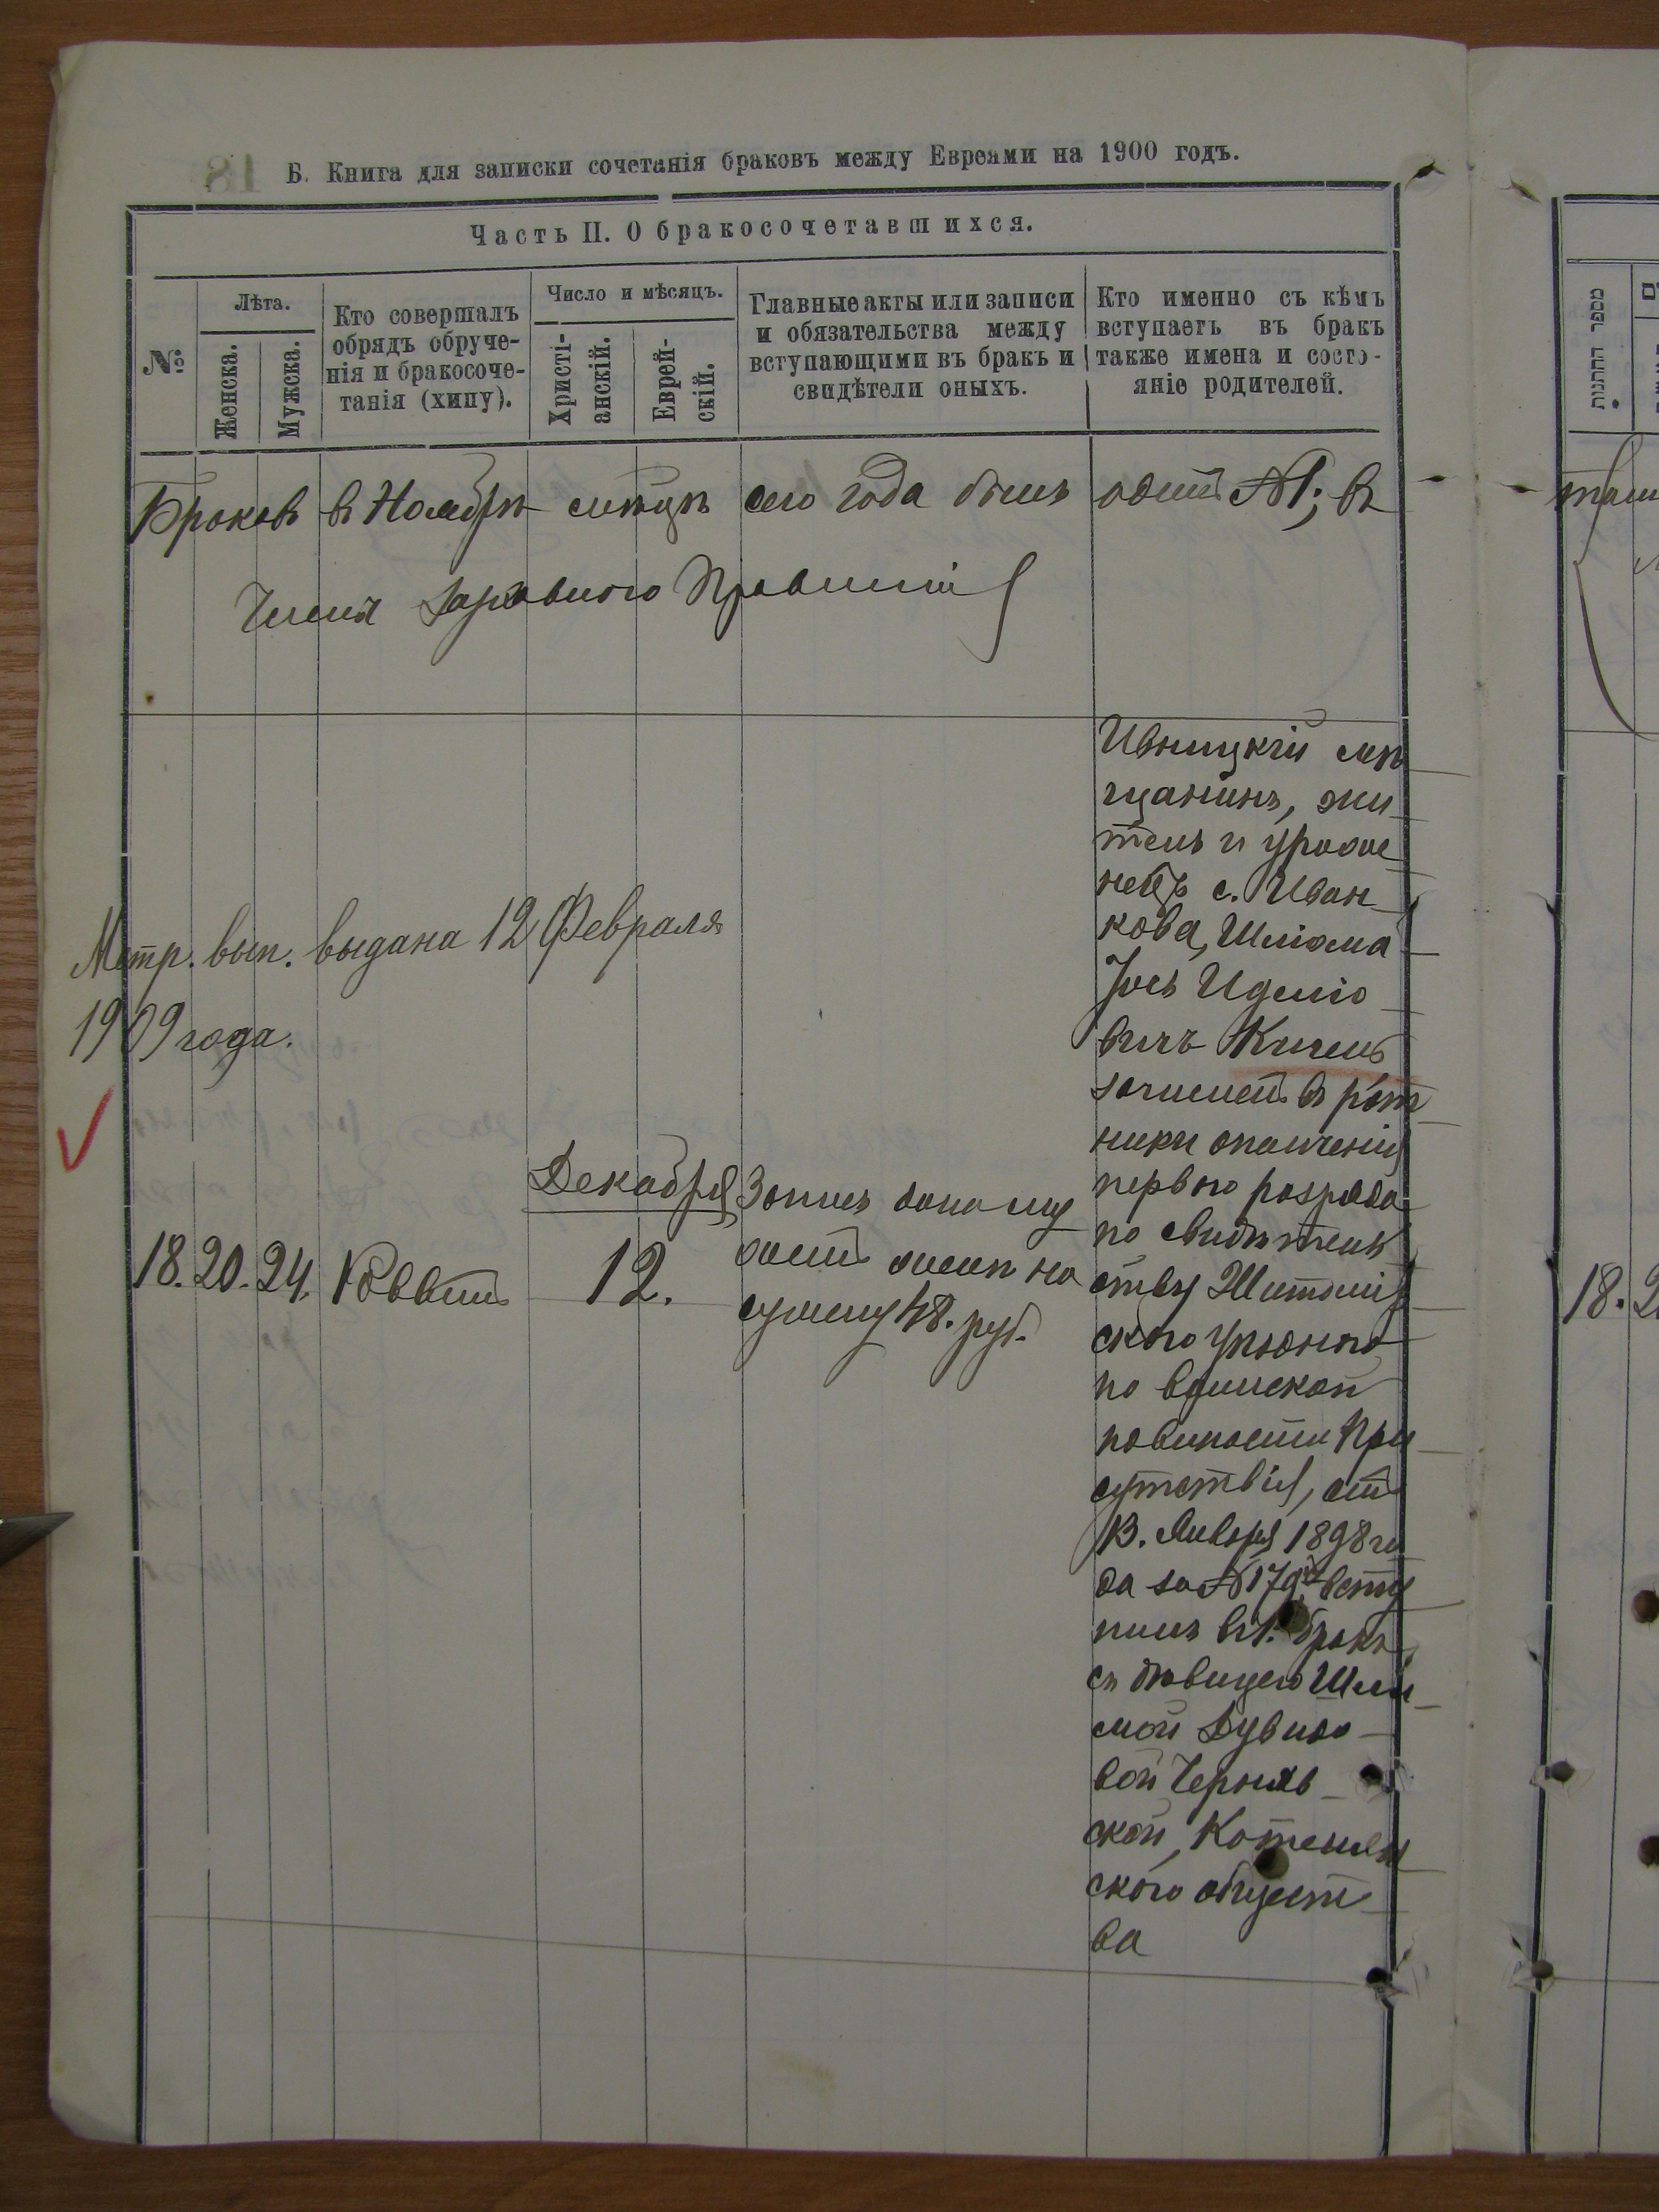 Б. Книга для записки сочетанія браковъ между Евреями на 1900 годъ.
Часть II. О бракосочетавшихся.
№
Лѣта.
Женска.
Мужска.
Кто совершалъ
обрядъ обруче-
нія и бракосоче-
танія (хипу).
Число и мѣсяцъ.
Христі-
анскій.
Еврей-
скій.
Главные акты или записи
и обязательства между
вступающими въ бракъ и
свидѣтели оныхъ.
Кто именно съ кѣмъ
вступаетъ въ бракъ
также имена и состо-
яніе родителей.
Браковъ въ Ноябрѣ мѣсяцѣ сего года былъ одинъ №1; в
Раввинъ
Метр. вып. выдана 12 Февраля
1909 года.
18. 20. 24. Раввинъ
Декабря
12.
Запись
на
сумму 48. руб.
Ивницкій мѣ
щанинъ, жи
тель и уроже
нецъ с. Иван
кова, Шліома
Іось Иделіо
вичъ Кигель
зачисленъ в рат
ники ополченія
перваго разряда
по свидѣтель
ству Житомір
скаго уѣзднаго
по воинской
повиности При
сутствія, отъ
13. Января 1898 го
да за № 179 всту
пилъ въ 1. бракъ
съ дѣвицею
мой Дувидо
вой Черняв
ской, Котельян
скаго общест
ва
מספר החתונות
18.